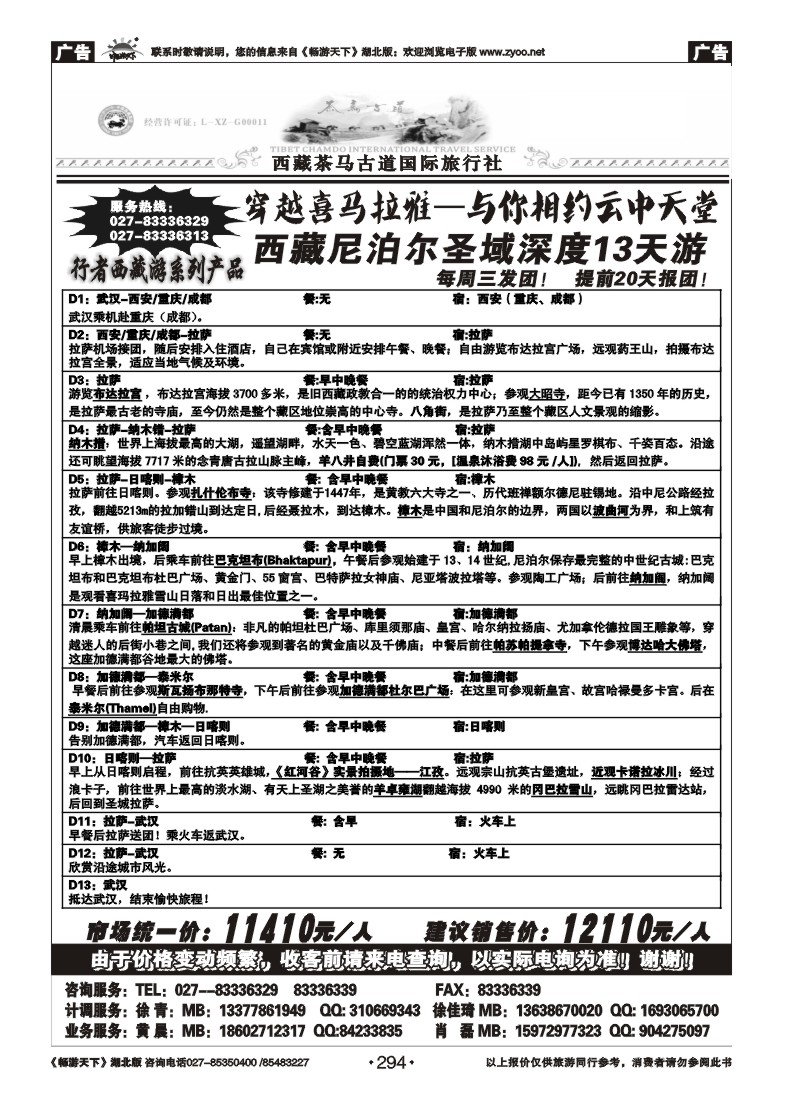 广告
联系时敬请说明，您的信息来自《畅游天下》湖北版；欢迎浏览电子版 www.zyoo.net
广告
经营许可证：L-XZ-G00011
茶马古道
TIBET CHAMDO INTERNATIONAL TRAVEL SERVICE
西藏茶马古道国际旅行社
服务热线：
027-83336329
027-83336313
穿越喜马拉雅—与你相约云中天堂
西藏尼泊尔圣域深度13天游
行者西藏游系列产品
每周三发团！ 提前20天报团！
D1：武汉-西安/重庆/成都 餐:无 宿：西安（重庆、成都）
武汉乘机赴重庆（成都）。
D2：西安/重庆/成都-拉萨 餐:无 宿:拉萨
拉萨机场接团，随后安排入住酒店，自己在宾馆或附近安排午餐、晚餐；自由游览布达拉宫广场，远观药王山，拍摄布达
拉宫全景，适应当地气候及环境。
D3：拉萨 餐:早中晚餐 宿:拉萨
游览布达拉宫，布达拉宫海拔 3700 多米，是旧西藏政教合一的的统治权力中心；参观大昭寺，距今已有 1350 年的历史，
是拉萨最古老的寺庙，至今仍然是整个藏区地位崇高的中心寺。八角街，是拉萨乃至整个藏区人文景观的缩影。
D4：拉萨-纳木错-拉萨 餐:含早中晚餐 宿:拉萨
纳木措：世界上海拔最高的大湖，遥望湖畔，水天一色、碧空蓝湖浑然一体，纳木措湖中岛屿星罗棋布、千姿百态。沿途
还可眺望海拔 7717 米的念青唐古拉山脉主峰，羊八井自费(门票 30 元，[温泉沐浴费 98 元 /人])，然后返回拉萨。
D5：拉萨-日喀则-樟木 餐: 含早中晚餐 宿:樟木
拉萨前往日喀则。参观扎什伦布寺：该寺修建于1447年，是黄教六大寺之一、历代班禅额尔德尼驻锡地。沿中尼公路经拉
孜，翻越5213m的拉加错山到达定日,后经聂拉木，到达樟木。樟木是中国和尼泊尔的边界，两国以波曲河为界，和上筑有
友谊桥，供旅客徒步过境。
D6：樟木—纳加阔 餐: 含早中晚餐 宿：纳加阔
早上樟木出境，后乘车前往巴克坦布(Bhaktapur)，午餐后参观始建于 13、14 世纪,尼泊尔保存最完整的中世纪古城:巴克
坦布和巴克坦布杜巴广场、黄金门、55 窗宫、巴特萨拉女神庙、尼亚塔波拉塔等。参观陶工广场；后前往纳加阔，纳加阔
是观看喜玛拉雅雪山日落和日出最佳位置之一。
D7：纳加阔—加德满都 餐: 含早中晚餐 宿:加德满都
清晨乘车前往帕坦古城(Patan)：非凡的帕坦杜巴广场、库里须那庙、皇宫、哈尔纳拉扬庙、尤加拿伦德拉国王雕象等，穿
越迷人的后街小巷之间,我们还将参观到著名的黄金庙以及千佛庙；中餐后前往帕苏帕提拿寺，下午参观博达哈大佛塔，
这座加德满都谷地最大的佛塔。
D8：加德满都—泰米尔 餐: 含早中晚餐 宿:加德满都
早餐后前往参观斯瓦扬布那特寺，下午后前往参观加德满都杜尔巴广场：在这里可参观新皇宫、故宫哈禄曼多卡宫。后在
泰米尔(Thamel)自由购物.
D9：加德满都—樟木—日喀则 餐: 含早中晚餐 宿:日喀则
告别加德满都，汽车返回日喀则。
D10：日喀则—拉萨 餐: 含早中晚餐 宿:拉萨
早上从日喀则启程，前往抗英英雄城，《红河谷》实景拍摄地——江孜。远观宗山抗英古堡遗址，近观卡诺拉冰川；经过
浪卡子，前往世界上最高的淡水湖、有天上圣湖之美誉的羊卓雍湖翻越海拔 4990 米的冈巴拉雪山，远眺冈巴拉雷达站，
后回到圣城拉萨。
D11：拉萨-武汉 餐: 含早 宿：火车上
早餐后拉萨送团！乘火车返武汉。
D12：拉萨-武汉 餐: 无 宿：火车上
欣赏沿途城市风光。
D13：武汉
抵达武汉，结束愉快旅程！
市场统一价：11410元/人 建议销售价：12110元/人
由于价格变动频繁，收客前请来电查询，以实际电询为准！谢谢！
咨询服务：TEL：027--83336329 83336339 FAX：83336339
计调服务：徐 青：MB：13377861949 QQ: 310669343 徐佳琦 MB：13638670020 QQ: 1693065700
业务服务：黄 晨：MB：18602712317 QQ:84233835 肖 磊 MB：15972977323 QQ: 904275097
《畅游天下》湖北版 咨询电话027-85350400 /85483227
·294·
以上报价仅供旅游同行参考，消费者请勿参阅此书